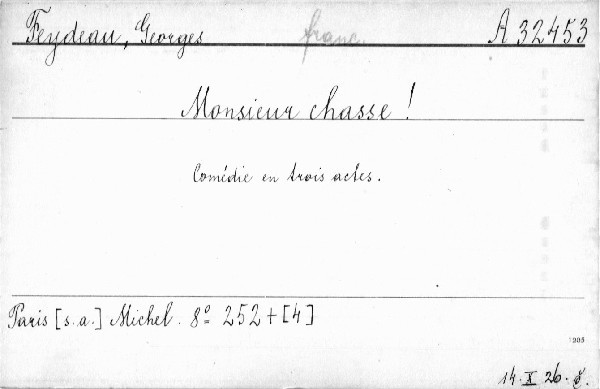 Feydeau, Georges franc. A 32453
Monsieur chasse!
Comédie en trois actes.
Paris [s.a.] Michel. 8º 252+[4]
14. X 26.